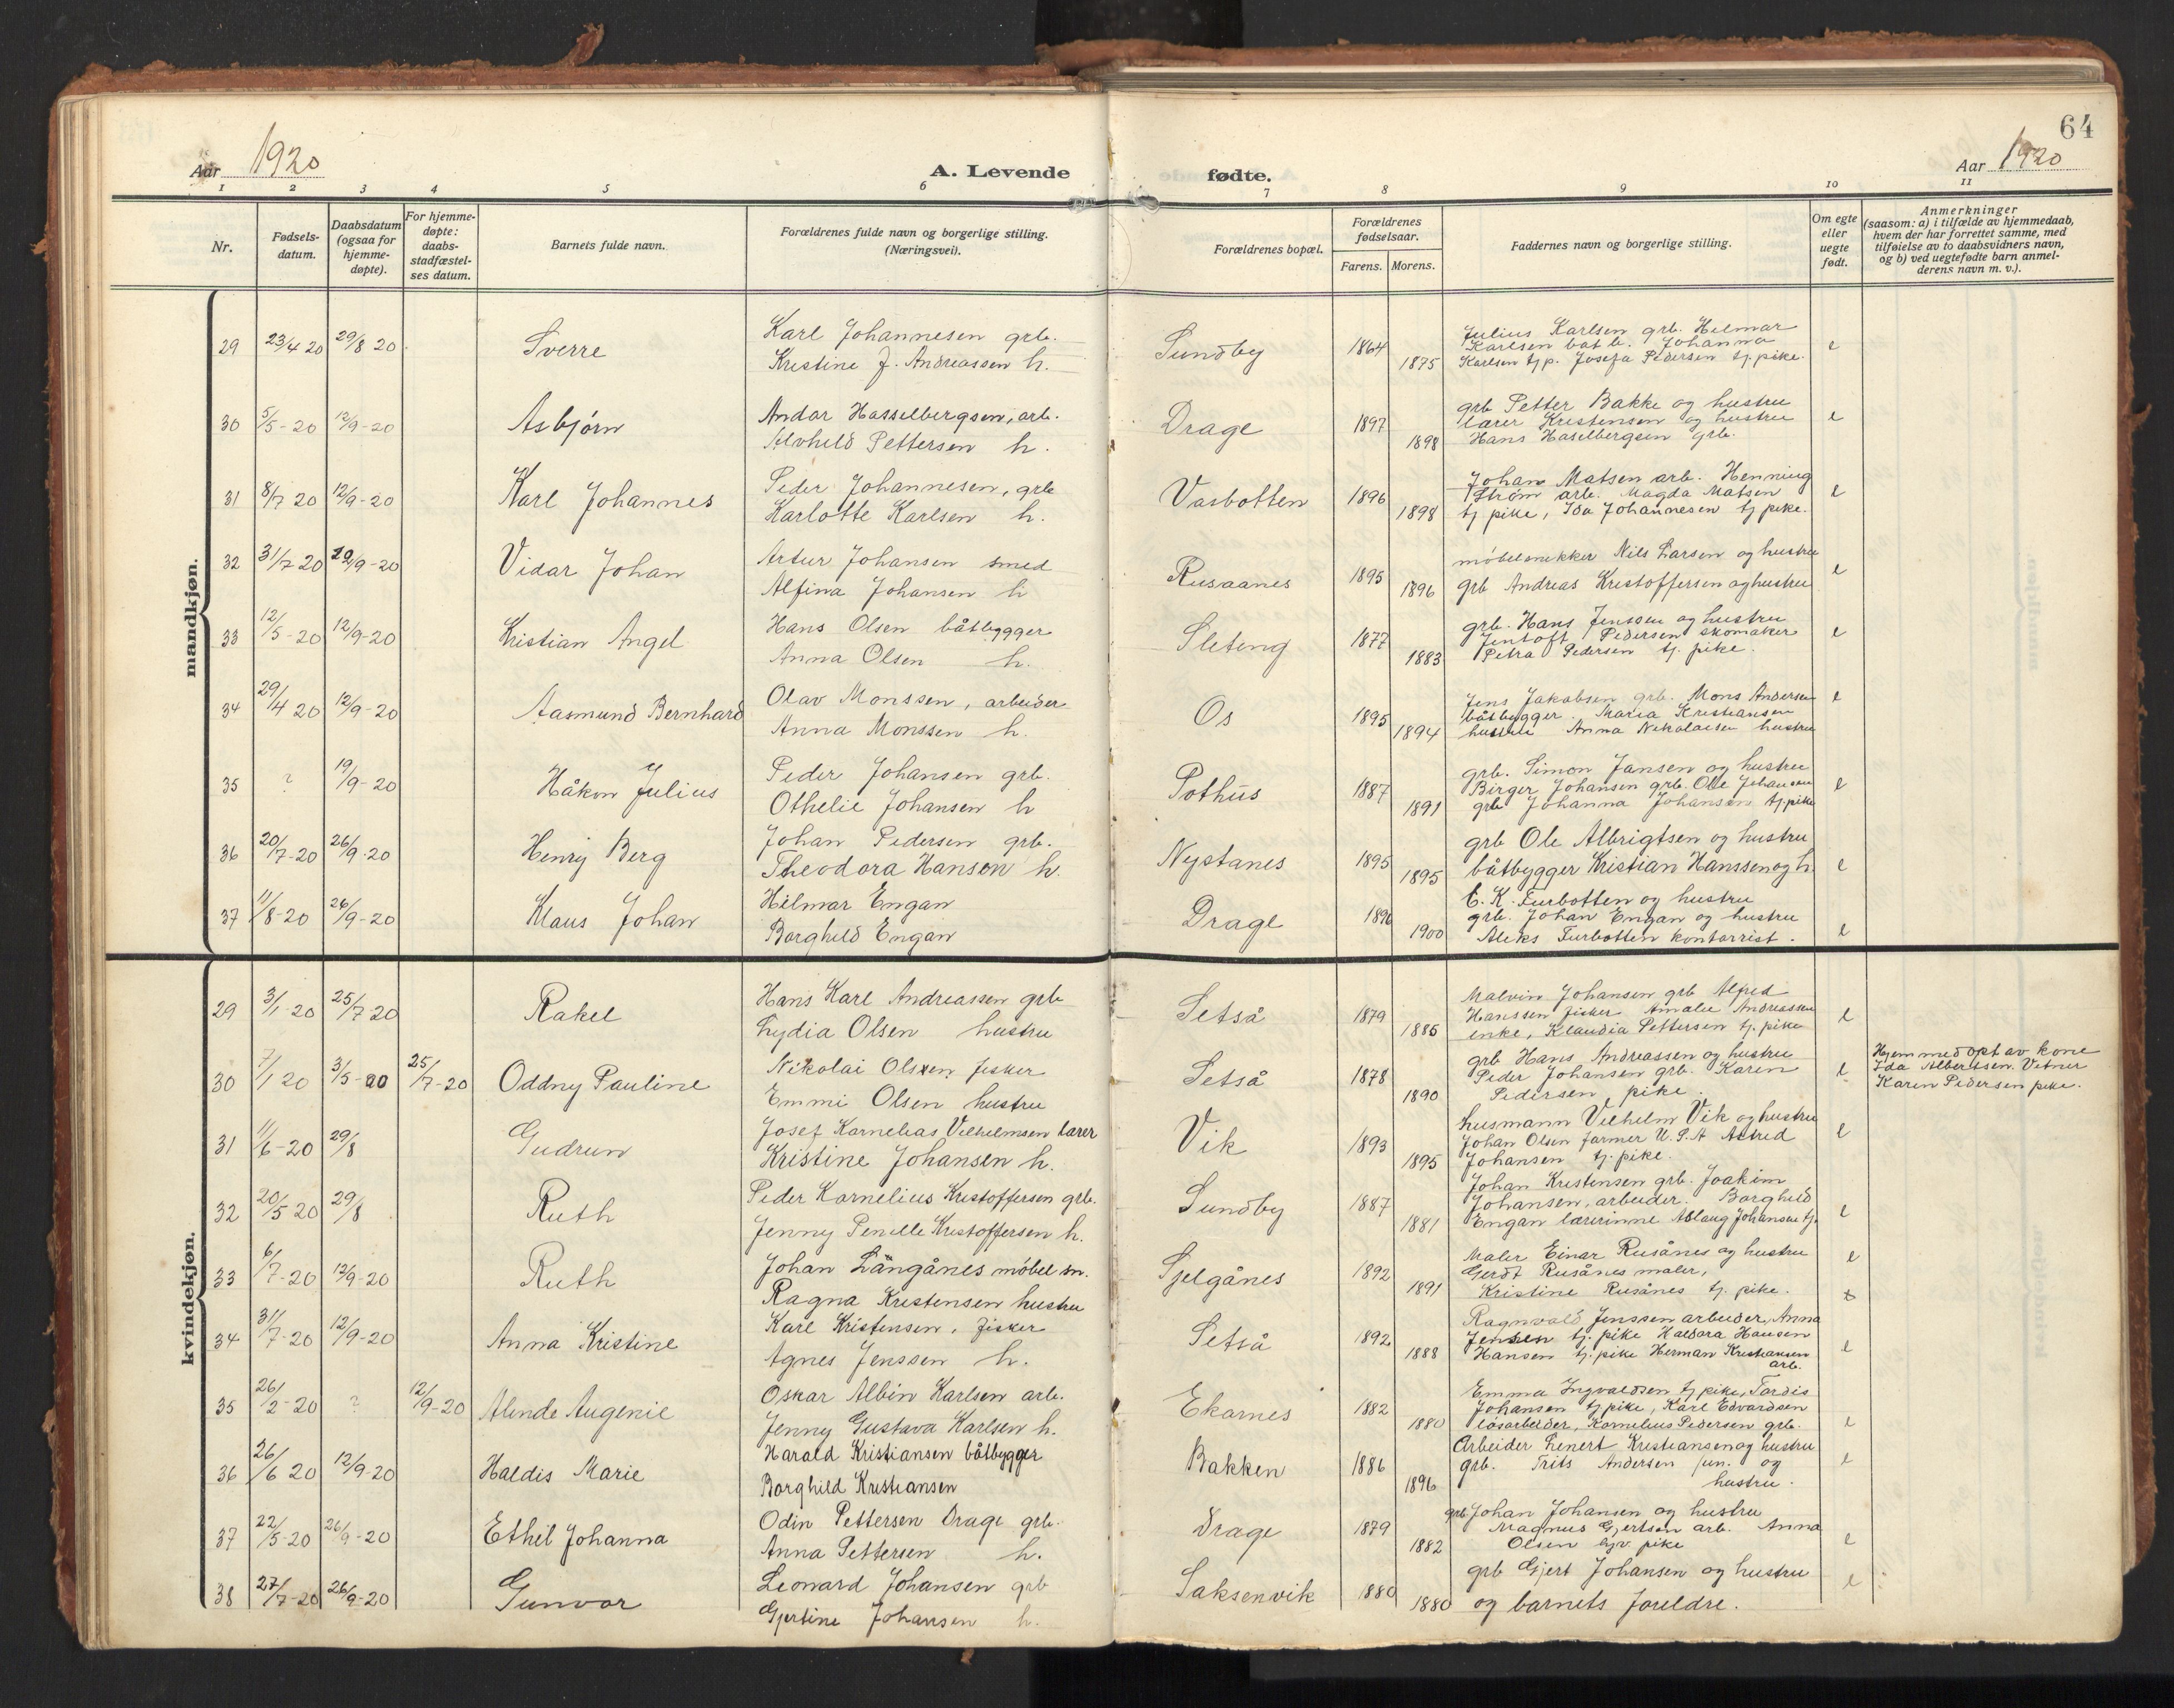 64
Aar 1920
A. Levende
fødte.
Aar 1920
1 2 3 4 5 6 7 8 9 10 11
Nr.
Fødsels-
datum.
Daabsdatum
(ogsaa for
hjemme-
døpte).
For hjemme-
døpte:
daabs-
stadfæstel-
ses datum.
Barnets fulde navn.
Forældrenes fulde navn og borgerlige stilling.
(Næringsvei).
Forældrenes bopæl.
Forældrenes
fødselsaar.
Farens. Morens.
Faddernes navn og borgerlige stilling.
Om egte
eller
uegte
født.
Anmerkninger
(saasom: a) i tilfælde av hjemmedaab,
hvem der har forrettet samme, med
tilføielse av to daabsvidners navn,
og b) ved uegtefødte barn anmel-
derens navn m. v.).
mandkjøn.
29 23/4 20 29/8 20 Sverre
Karl Johannesen grb.
Kristine J. Andreassen h.
Sundby 1864 1875
Julius Karlsen grb. Hilmar
Karlsen båtb. Johanna
Karlsen tj p. Josefa Pedersen tj. pike.
e
30 5/5-20 12/9-20 Asbjørn
Andor Hasselbergsen, arb.
Alvhild Pettersen h.
Drage 1897 1898
grb Petter Bakke og hustru
lærer Kristensen og hustru
Hans Haselbergsen grb.
e
31 8/7 20 12/9-20 Karl Johannes
Peder Johannesen, grb
Karlotte Karlsen h.
Vasbotten 1896 1898
Johan Matsen arb. Henning
Strøm arb. Magda Matsen
tj pike, Ida Johannesen tj pike.
e
32 31/7 20 12/9-20 Vidar Johan
Artur Johansen smed
Alfina Johansen h
Rusaanes 1895 1896
møbelsnekker Nils Larsen og hustru
grb Andreas Kristoffersen og hustru
e
33 12/5-20 12/9-20 Kristian Angel
Hans Olsen båtbygger
Anna Olsen h.
Sleteng 1877 1883
grb. Hans Jenssen og hustru
Jentoft Pedersen skomaker
Petra Pedersen tj. pike.
e
34 29/4 20 12/9-20 Aasmund Bernhard
Olav Monssen, arbeider
Anna Monssen h.
Os 1895 1894
Jens Jakobsen grb. Mons Andersen
båtbygger. Maria Kristiansen
hustru Anna Nikolaisen hustru
e
35 ? 19/9-20 Håkon Julius
Peder Johansen grb.
Othelie Johansen h
Pothus 1887 1891
grb. Simon Jansen og hustru
Birger Johansen grb. Ole Johansen
grb Johanna Johansen tj. pike
e
36 20/7-20 26/9-20 Henry Berg
Johan Pedersen grb.
Theodora Hanson h.
Nystanes 1895 1895
grb Ole Albrigtsen og hustru
båtbygger Kristian Hanssen og h.
e
37 11/8-20 26/9-20 Klaus Johan
Hilmar Engan
Borghild Engan
Drage 1896 1900
E. K. Furbotten og hustru
grb. Johan Engan og hustru
Aleks Furbotten kontorrist.
e
kvindekjøn.
29 3/1-20 25/7 20 Rakel
Hans Karl Andreassen grb
Lydia Olsen hustru
Setså 1879 1885
Malvin Johansen grb Alfred
Hanssen fisker Amalie Andreassen
enke, Klaudia Pettersen tj. pike
e
30 7/1 20 3/5-20 25/7-20 Oddny Pauline
Nikolai Olsen fisker
Emmi Olsen hustru
Setså 1878 1890
grb Hans Andreassen og hustru
Peder Johansen grb. Karen
Pedersen pike.
e
Hjemmedøpt av kone
Ida Albertsen. Vitner
Karen Pedersen pike.
31 11/6-20 29/8 Gudrun
Josef Kornelias Vilhelmsen lærer
Kristine Johansen h.
Vik 1893 1895
husmann Vilhelm Vik og hustru
Johan Olsen farmer U.S.A Astrid
Johansen tj. pike.
e
32 20/5 20 29/8 Ruth
Peder Kornelius Kristoffersen grb.
Jenny Penille Kristoffersen h.
Sundby 1887 1881
Johan Kristensen grb. Joakim
Johansen, arbeider. Borghild
Engan lærerinne Aslaug Johansen tj.
e
33 6/7-20 12/9-20 Ruth
Johan Långånes møbelsn.
Ragna Kristensen hustru
Sjelgånes 1892 1891
Maler Einar Rusånes og hustru
Gerdt Rusånes maler,
Kristine Rusånes tj. pike.
e
34 31/7-20 12/9-20 Anna Kristine
Karl Kristensen, fisker
Agnes Jenssen h.
Setså 1892 1888
Ragnvald Jenssen arbeider, Anna
Jensen tj. pike Haldora Hansen
Hansen tj. pike Herman Kristiansen
arb.
e
35 26/2-20 ? 12/9-20 Alinde Augenie
Oskar Albin Karlsen arb.
Jenny Gustava Karlsen h.
Ekornes 1882 1880
Emma Ingvaldsen tj pike, Tordis
Johansen tj pike, Karl Edvardsen
løsarbeider, Kornelius Pedersen grb.
e
36 26/6 20 12/9-20 Haldis Marie
Harald Kristiansen båtbygger
Borghild Kristiansen
Bakken 1886 1896
Arbeider Lenert Kristiansen og hustru
grb. Frits Andersen jun. og
hustru.
e
37 22/5-20 26/9-20 Ethil Johanna
Odin Pettersen Drage grb.
Anna Pettersen h.
Drage 1879 1882
grb Johan Johansen og hustru
Magnus Gjertsen arb. Anna
Olsen pike
e
38 27/7-20 26/9-20 Gunvor
Leonard Johansen grb
Gjertine Johansen h.
Saksenvik 1880 1880
grb Gjert Johansen og hustru
og barnets foreldre.
e